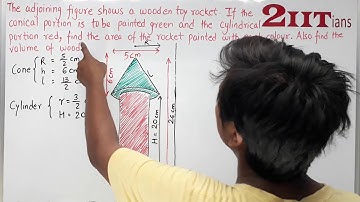 The adjoining figure shows a wooden toy rocket. If the
conical portion is to be painted green and the cylindrical
portion red, find the area of the rocket painted with colour. Also find
volume of wood
2IITians
R
5cm
6 cm
l
Cone R = 5/2 cm
h = 6 cm
l = 13/2 cm
Cylinder r = 3/2
H = 20
H = 20cm
26 cm